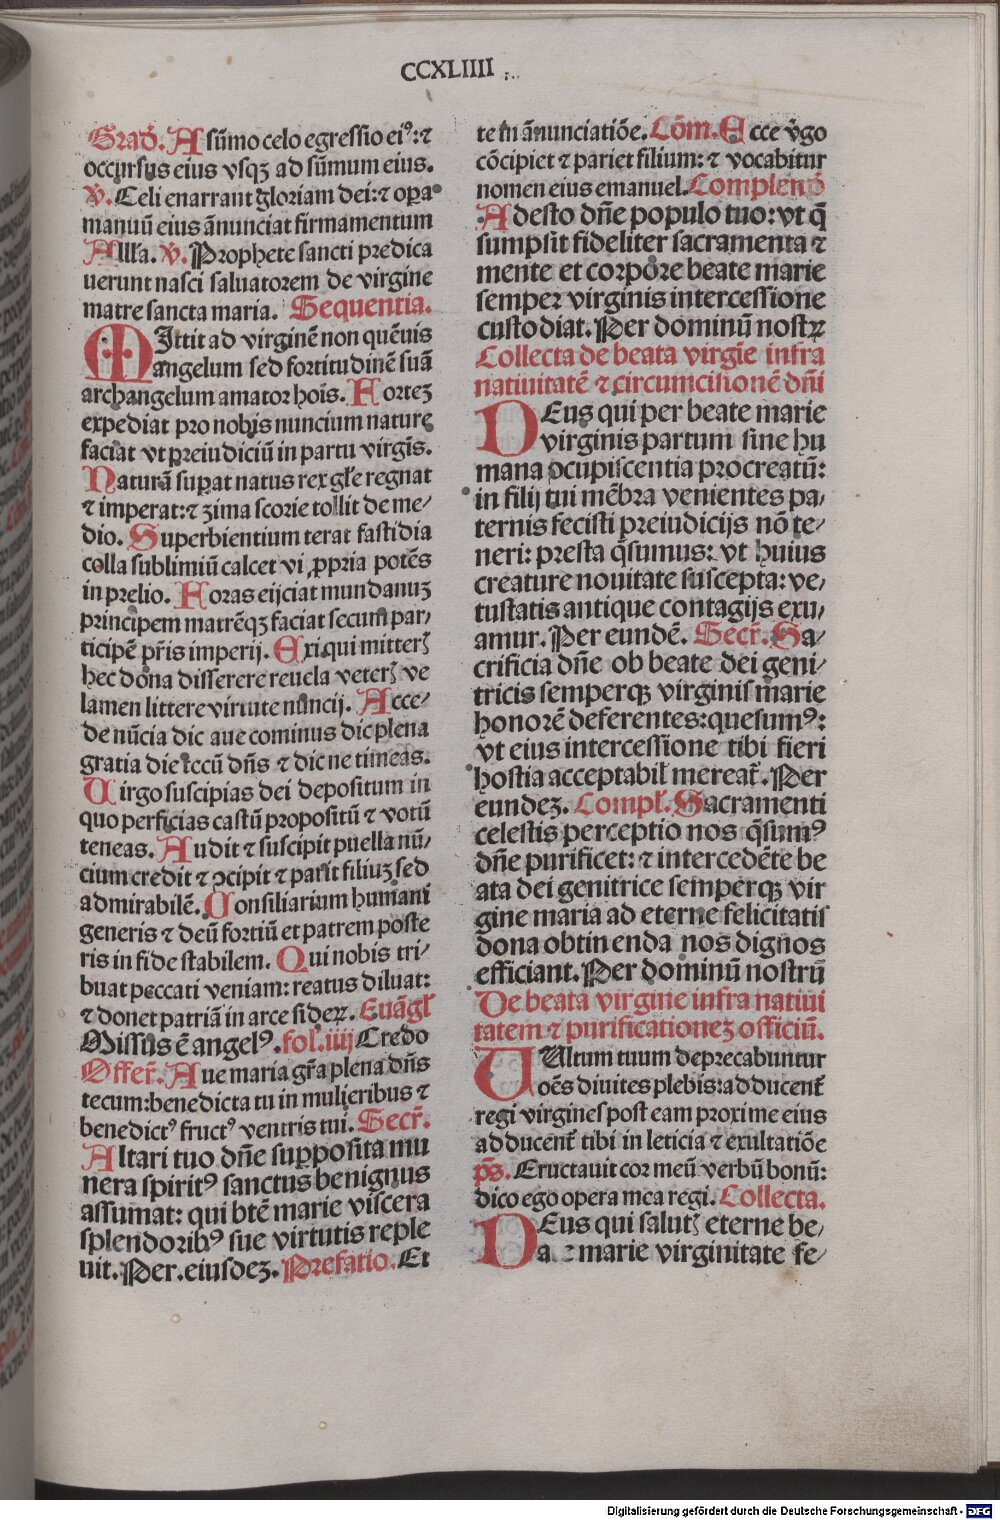 CCXLIIII
Grad̄. A sūmo celo egressio eiꝰ: ⁊
occursus eius vsqꝫ ad sūmum eius.
℣. Celi enarrant gloriam dei: ⁊ oꝑa
manuū eius ānunciat firmamentum
Alľa. ℣. Prophete sancti predica
uerunt nasci saluatorem de virgine
matre sancta maria. Sequentia.
MIttit ad virginē non quēuis
angelum sed fortitudinē suā
archangelum amator hoīs. Forteꝫ
expediat pro nobis nuncium nature
faciat vt preiudiciū in partu virgīs.
Naturā suꝑat natus rex gľe regnat
⁊ imperat: ⁊ zima scorie tollit de me/
dio. Superbientium terat fastidia
colla sublimiū calcet vi ꝓpria potēs
in prelio. Foras eijciat mundanuꝫ
principem matrēqꝫ faciat secum par/
ticipē pr̄is imperij. Exi qui mitterꝭ
hec dona disserere reuela veterꝭ ve
lamen littere virtute nūncij. Acce/
de nūcia dic aue cominus dic plena
gratia dic tecū dn̄s ⁊ dic ne timeas.
Uirgo suscipias dei depositum in
quo perficias castū propositū ⁊ votū
teneas. Audit ⁊ suscipit puella nū/
cium credit ⁊ ꝯcipit ⁊ parit filiuꝫ sed
admirabilē. Consiliarium humani
generis ⁊ deū fortiū et patrem poste
ris in fide stabilem. Qui nobis tri/
buat peccati veniam: reatus diluat:
⁊ donet patriā in arce sideꝝ. Euāgľ
Missus ē angelꝰ. fol. iiij Credo
Offer̄. Aue maria gr̄a plena dn̄s
tecum: benedicta tu in mulieribus ⁊
benedictꝰ fructꝰ ventris tui. Secr̄.
Altari tuo dn̄e suꝑposita mu
nera spiritꝰ sanctus benignus
assumat: qui btē marie viscera
splendoribꝰ sue virtutis reple
uit. Per. eiusdeꝫ. Prefatio. Et
te in ānunciatiōe. Cōm. Ecce v̄go
cōcipiet ⁊ pariet filium: ⁊ vocabitur
nomen eius emanuel. Complend̄
Adesto dn̄e populo tuo: vt q̄
sumpsit fideliter sacramenta ⁊
mente et corpore beate marie
semper virginis intercessione
custodiat. Per dominū nostꝝ
Collecta de beata virgīe infra
natiuitatē ⁊ circumcisionē dn̄i
DEus qui per beate marie
virginis partum sine hu
mana ꝯcupiscentia procreatū:
in filij tui mēbra venientes pa/
ternis fecisti preiudicijs nō te/
neri: presta q̄sumus: vt huius
creature nouitate suscepta: ve/
tustatis antique contagijs exu/
amur. Per eundē. Secr̄. Sa/
crificia dn̄e ob beate dei geni/
tricis semperqꝫ virginis marie
honorē deferentes: quesumꝰ:
vt eius intercessione tibi fieri
hostia acceptabiľ mereat̄. Per
eundeꝫ. Compľ. Sacramenti
celestis perceptio nos q̄sumꝰ
dn̄e purificet: ⁊ intercedēte be
ata dei genitrice semperqꝫ vir
gine maria ad eterne felicitatis
dona obtinenda nos dignos
efficiant. Per dominū nostrū
De beata virgine infra natiui
tatem ⁊ purificationeꝫ officiū.
UUltum tuum deprecabuntur
oēs diuites plebis: adducent̄
regi virgines post eam proxime eius
adducent̄ tibi in leticia ⁊ exultatiōe
p̄s. Eructauit cor meū verbū bonū:
dico ego opera mea regi. Collecta.
DEus qui salutꝭ eterne be/
a marie virginitate fe/
Digitalisierung gefördert durch die Deutsche Forschungsgemeinschaft - DFG